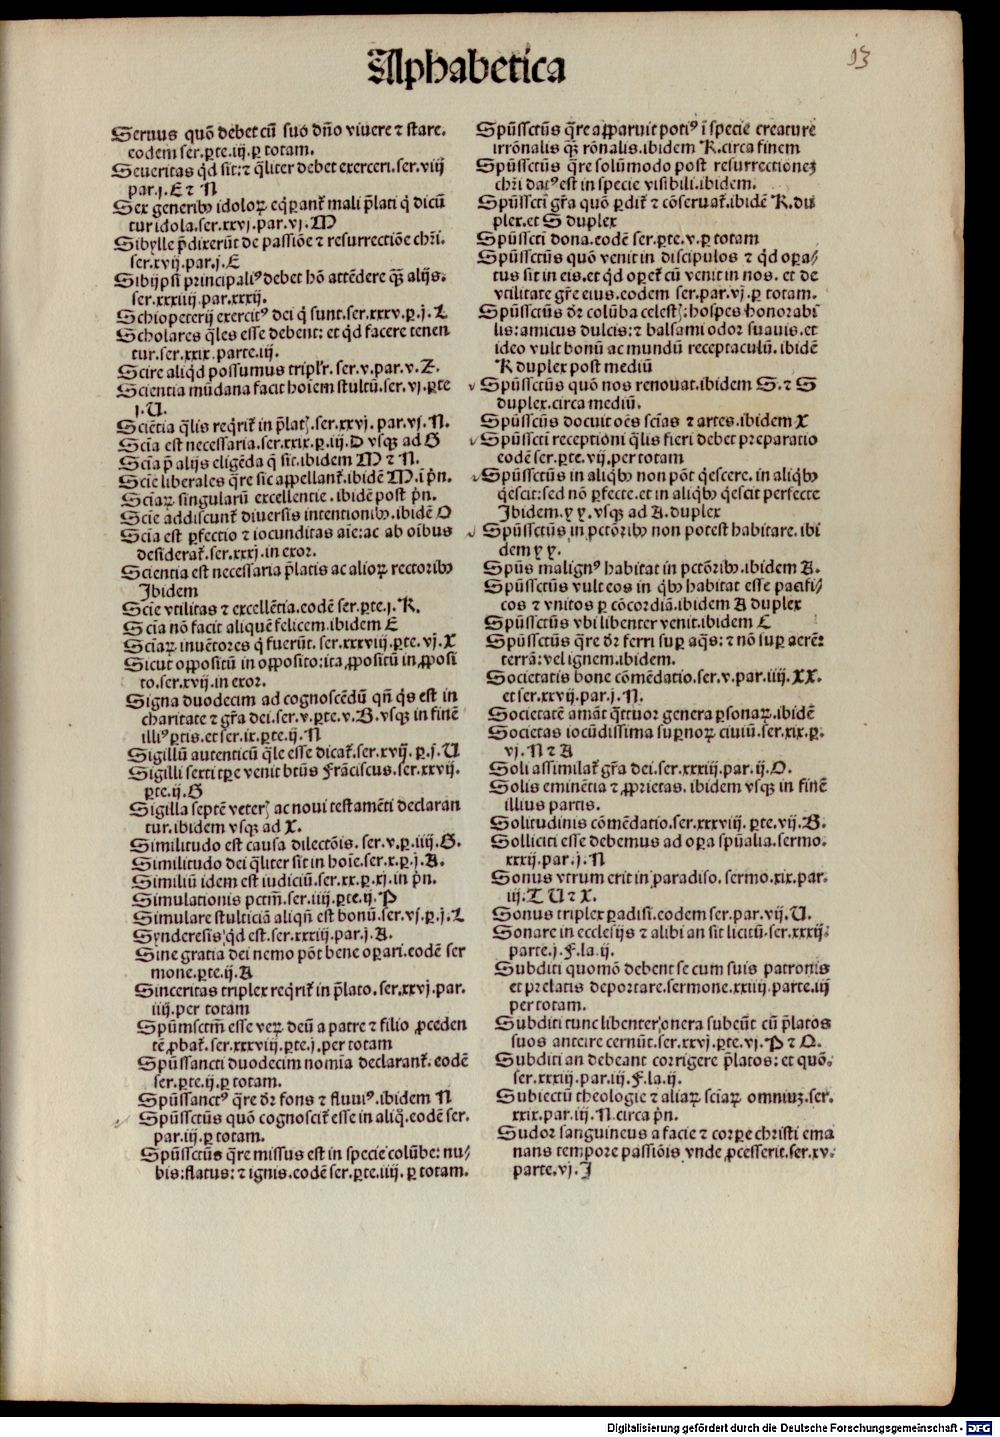 Alphabetica
13
Seruus quō debet cū suo dn̄o viuere ⁊ stare.
eodem ser.ꝑte.iij.ꝑ totam.
Seueritas qͥd sit:⁊ qͣliter debet exerceri.ser.viij
par.j.E ⁊ N
Sex generibꝰ idoloꝝ eq̄ꝑant᷑ mali p̄lati qͥ dicū
tur idola.ser.xxvj.par.vj.M
Sibylle p̄dixerūt de passiōe ⁊ resurrectiōe chr̄i.
ser.xvij.par.j.E
Sibijpsi principaliꝰ debet hō attēdere qͣꝫ alijs.
ser.xxxiiij.par.xxxij.
Schiopeterij exercitꝰ dei qͥ sunt.ser.xxxv.ꝑ.j.L
Scholares qͣles esse debent: et qͥd facere tenen
tur.ser.xxix.parte.iij.
Scire aliqͥd possumus triplr̄.ser.v.par.v.Z.
Scientia mūdana facit hoīem stultū.ser.vj.ꝑte
j.U.
Sciētia qͣlis req̄rit᷑ in p̄latꝭ.ser.xxvj.par.vj.N.
Sciā est necessaria.ser.xxix.ꝑ.iij.D vsqꝫ ad G
Sciā p̄ alijs eligēda q̄ sit.ibidem M ⁊ N.
Scie liberales q̄re sic appellant᷑.ibidē M.ī pn̄.
Sciāꝝ singularū excellentie.ibidē post pn̄.
Scie addiscunt᷑ diuersis intentionibꝰ.ibidē O
Sciā est ꝑfectio ⁊ iocunditas aīe:ac ab oībus
desiderat᷑.ser.xxxj.in exor.
Scientia est necessaria p̄latis ac alioꝝ rectoribꝰ
Ibidem
Scie vtilitas ⁊ excellētia.eodē ser.ꝑte.j.R.
Sciā nō facit aliquē felicem.ibidem E
Sciāꝝ inuētores qͥ fuerūt.ser.xxxviij.ꝑte.vj.X
Sicut oppositū in opposito:ita ꝓpositū in ꝓposi
to.ser.xvij.in exor.
Signa duodecim ad cognoscēdū qn̄ qͥs est in
charitate ⁊ gr̄a dei.ser.v.ꝑte.v.B.vsqꝫ in finē
illiꝰ ꝑtis.et ser.ix.ꝑte.ij.N
Sigillū autenticū qͣle esse dicat᷑.ser.xvij.ꝑ.j.U
Sigilli sexti tꝑe venit btūs Frāciscus.ser.xxvij.
ꝑte.ij.G
Sigilla septē veterꝭ ac noui testamēti declaran
tur.ibidem vsqꝫ ad X.
Similitudo est causa dilectōis. ser.v.ꝑ.iiij.G.
Similitudo dei qͣliter sit in hoīe.ser.x.ꝑ.j.A.
Similiū idem est iudiciū.ser.xx.ꝑ.xj.in pn̄.
Simulationis pctm̄.ser.iiij.ꝑte.ij.P
Simulare stulticiā aliqn̄ est bonū.ser.vj.ꝑ.j.L
Synderesis qͥd est.ser.xxxiij.par.j.A.
Sine gratia dei nemo pōt bene oꝑari.eodē ser
mone.ꝑte.ij.A
Sinceritas triplex req̄rit᷑ in p̄lato.ser.xxvj.par.
iiij.per totam
Spūmsctm̄ esse veꝝ deū a patre ⁊ filio ꝓceden
tē ꝓbat᷑.ser.xxxviij.ꝑte.j.per totam
Spūssancti duodecim nomīa declarant᷑. eodē
ser.ꝑte.ij.ꝑ totam.
Spūssanctꝰ q̄re dr̄ fons ⁊ fluuiꝰ.ibidem N
Spūssctūs quō cognoscit᷑ esse in aliqͦ.eodē ser.
par.iij.ꝑ totam.
Spūssctūs q̄re missus est in specie colūbe: nu⸗
bis:flatus:⁊ ignis.eodē ser.ꝑte.iiij.ꝑ totam.
Spūssctūs q̄re apparuit potiꝰ ī specie creature
irrōnalis qͣꝫ rōnalis.ibidem R.circa finem
Spūssctūs q̄re solūmodo post resurrectionēꝫ
chr̄i datꝰ est in specie visibili.ibidem.
Spūsscti gr̄a quō ꝑdit᷑ ⁊ cōseruat᷑.ibidē R.du
plex.et S duplex
Spūsscti dona.eodē ser.ꝑte.v.ꝑ totam
Spūssctūs quō venit in discipulos ⁊ qͥd oꝑa⸗
tus sit in eis.et qͥd oꝑet᷑ cū venit in nos. et de
vtilitate gr̄e eius.eodem ser.par.vj.ꝑ totam.
Spūssctūs dr̄ colūba celestꝭ:hospes honorabi
lis:amicus dulcis:⁊ balsami odor suauis.et
ideo vult bonū ac mundū receptaculū.ibidē
R duplex post mediū
Spūssctūs quō nos renouat.ibidem S.⁊ S
duplex.circa mediū.
Spūssctūs docuit oēs sciās ⁊ artes.ibidem X
Spūsscti receptioni qͣlis fieri debet preparatio
eodē ser.ꝑte.vij.per totam
Spūssctūs in aliqͥbꝰ non pōt qͥescere.in aliqͥbꝰ
qͥescit:sed nō ꝑfecte.et in aliqͥbꝰ qͥescit perfecte
Ibidem.y y.vsqꝫ ad A.duplex
Spūssctūs in pctōribꝰ non potest habitare.ibi
dem y y.
Spūs malignꝰ habitat in pctōribꝰ.ibidem A.
Spūssctūs vult eos in qͥbꝰ habitat esse pacifi⸗
cos ⁊ vnitos ꝑ cōcordiā.ibidem A duplex
Spūssctūs vbi libenter venit.ibidem C
Spūssctūs q̄re dr̄ ferri suꝑ aqͣs:⁊ nō suꝑ aerē:
terrā:vel ignem.ibidem.
Societatis bone cōmēdatio.ser.v.par.iiij.XX.
et ser.xxvij.par.j.N.
Societatē amāt qͣttuor genera ꝑsonaꝝ.ibidē
Societas iocūdissima suꝑnoꝝ ciuiū.ser.xix.ꝑ.
vj.N ⁊ A
Soli assimilat᷑ gr̄a dei.ser.xxxiij.par.ij.O.
Solis eminētia ⁊ ꝓprietas.ibidem vsqꝫ in finē
illius partis.
Solitudinis cōmēdatio.ser.xxxviij.ꝑte.vij.B.
Solliciti esse debemus ad oꝑa spūalia.sermo.
xxxij.par.j.N
Sonus vtrum erit in paradiso.sermo.xix.par.
iij.T U ⁊ X.
Sonus triplex ꝑadisi.eodem ser.par.vij.U.
Sonare in ecclesijs ⁊ alibi an sit licitū.ser.xxxij.
parte.j.F.la.ij.
Subditi quomō debent se cum suis patronis
et prelatis deportare.sermone.xxiiij.parte.iij
per totam.
Subditi tunc libenter onera subeūt cū p̄latos
suos anteire cernūt.ser.xxvj.ꝑte.vj.P ⁊ Q.
Subditi an debeant corrigere p̄latos:et quō.
ser.xxxiij.par.iij.F.la.ij.
Subiectū theologie ⁊ aliaꝝ sciāꝝ omniuꝫ.ser.
xxix.par.iij.N.circa pn̄.
Sudor sanguineus a facie ⁊ corꝑe christi ema
nans tempore passiōis vnde ꝓcesserit.ser.xv.
parte.vj.I
Digitalisierung gefördert durch die Deutsche Forschungsgemeinschaft - DFG